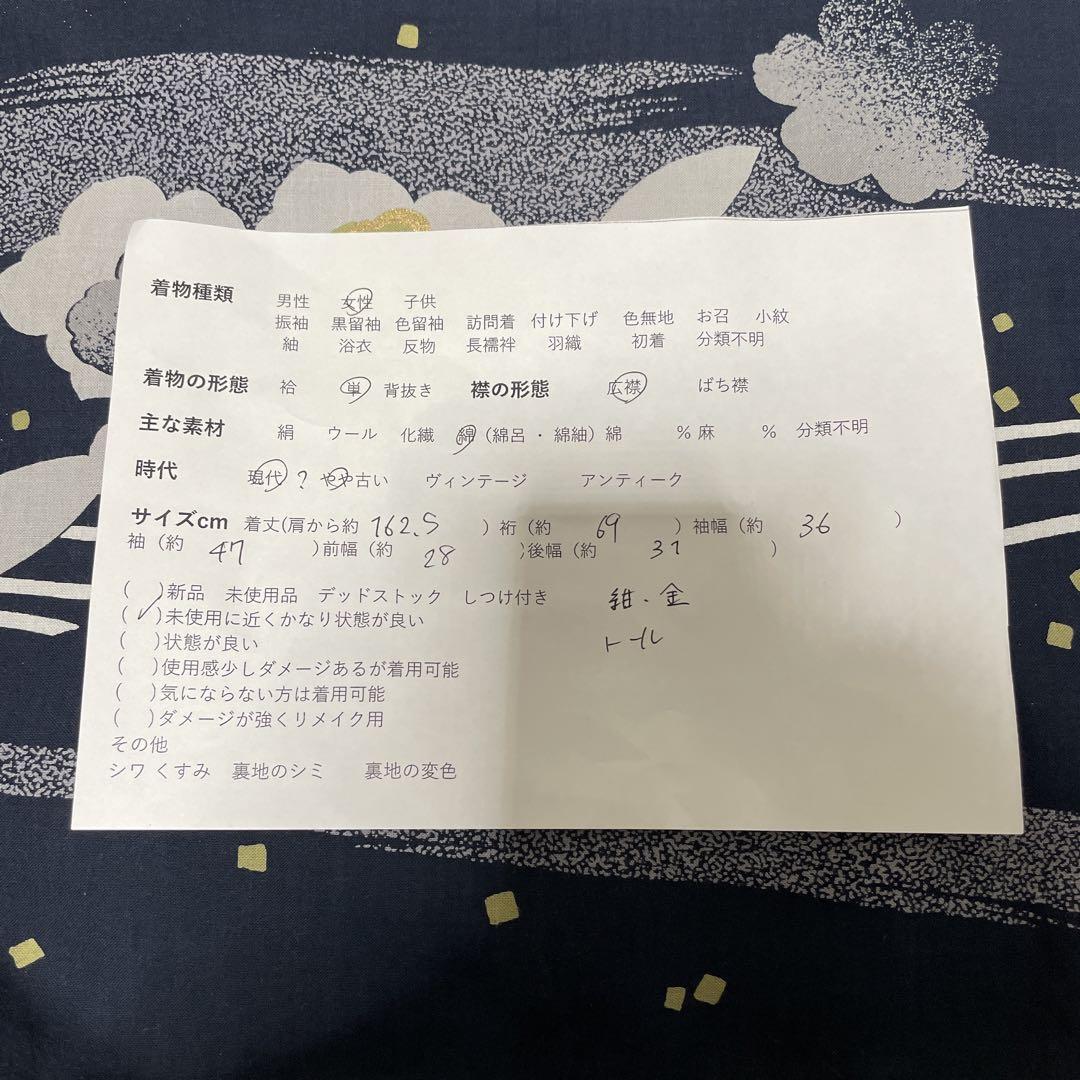 着物種類 男性 女性 子供
振袖 黒留袖 色留袖 訪問着 付け下げ 色無地 お召 小紋
紬 浴衣 反物 長襦袢 羽織 初着 分類不明
着物の形態 袷 単 背抜き 襟の形態 広襟 ばち襟
主な素材 絹 ウール 化繊 綿（綿呂・綿紬）綿 %麻 % 分類不明
時代 現代 ? やや古い ヴィンテージ アンティーク
サイズcm 着丈(肩から約 162.5 ) 裄（約 69 ) 袖幅（約 36 )
袖（約 47 )前幅（約 28 )後幅（約 31 )
( )新品 未使用品 デッドストック しつけ付き 紺・金
(✓)未使用に近くかなり状態が良い
( )状態が良い トール
( )使用感少しダメージあるが着用可能
( )気にならない方は着用可能
( )ダメージが強くリメイク用
その他
シワ くすみ 裏地のシミ 裏地の変色